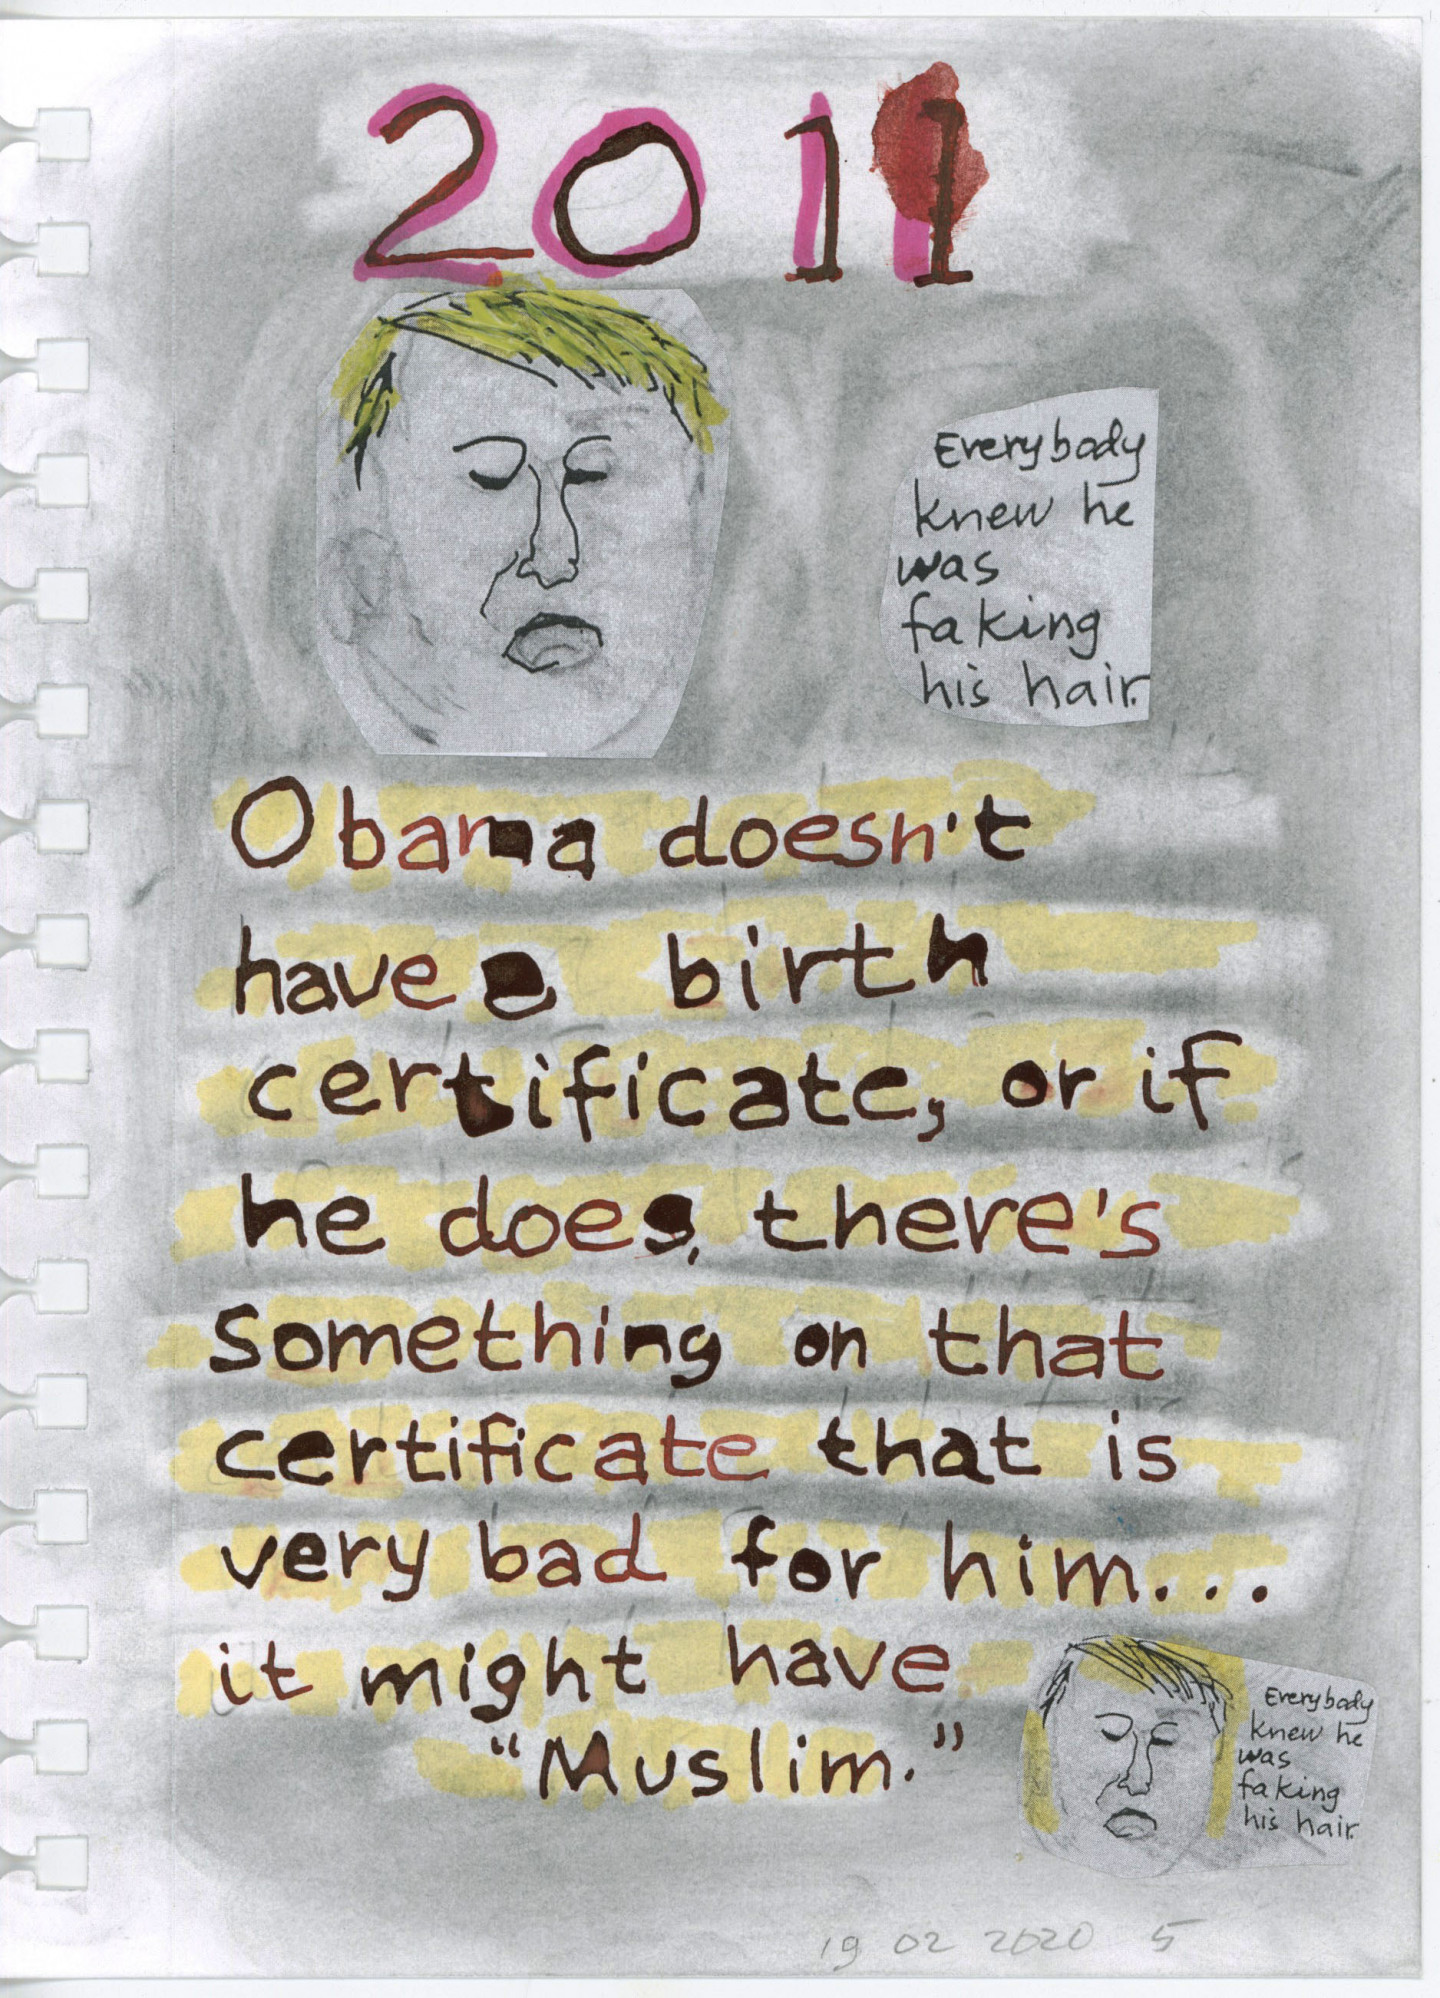 2011
Everybody
knew he
was
faking
his hair.
Obama doesn't
have a birth
certificate, or if
he does, there's
something on that
certificate that is
very bad for him...
it might have
"Muslim."
Everybody
knew he
was
faking
his hair.
19 02 2020 5